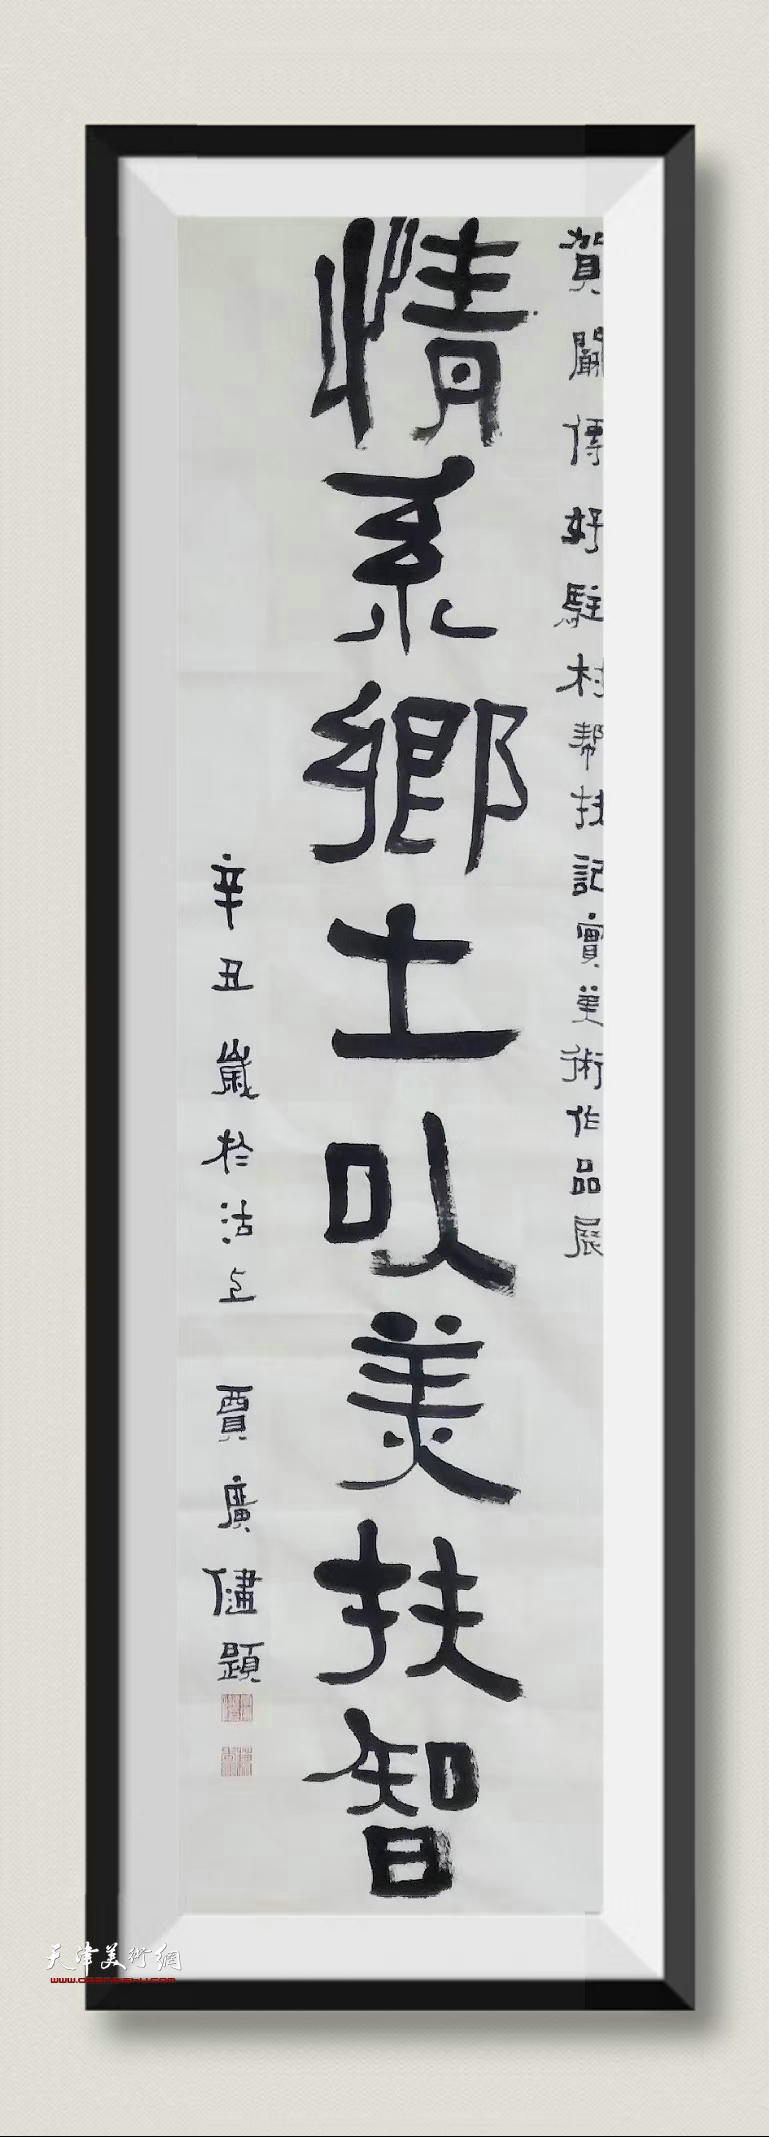 賀關傳好駐村帮扶記實美術作品展
情系鄉土以美扶智
辛丑歲於沽上 賈廣健題
天津美術網